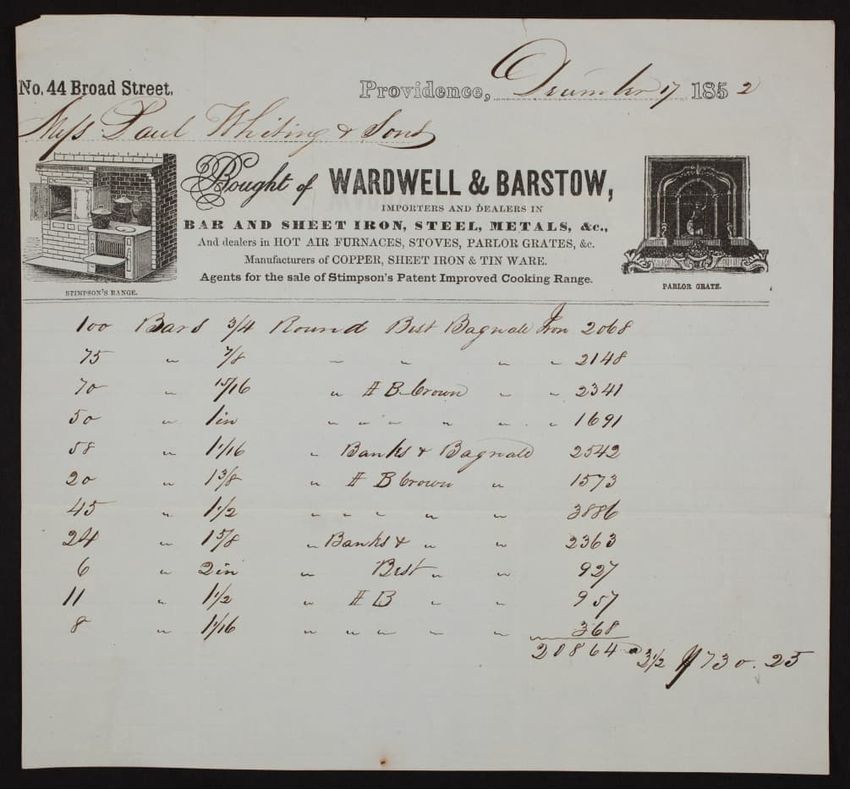 No. 44 Broad Street. Providence, December 17 1852
Mess Paul Whiting & Sons
Bought of WARDWELL & BARSTOW,
IMPORTERS AND DEALERS IN
BAR AND SHEET IRON, STEEL, METALS, &c.,
And dealers in HOT AIR FURNACES, STOVES, PARLOR GRATES, &c.
Manufacturers of COPPER, SHEET IRON & TIN WARE.
Agents for the sale of Stimpson's Patent Improved Cooking Range.
STIMPSON'S RANGE.
PARLOR GRATE.
100 Bars 3/4 Round Best Bagnald Iron 2068
75 " 7/8 " " " " 2148
70 " 15/16 " HB Crown " " 2341
50 " 1 in " " " " " " 1691
58 " 1 1/16 " Banks & Bagnald 2542
20 " 1 3/8 " HB Crown " 1573
45 " 1 1/2 " " " " " 3886
24 " 1 5/8 " Banks & " " 2363
6 " 2 in " Best " " 927
11 " 1 1/2 " HB " " 957
8 " 1 1/16 " " " " " 368
20864 @ 3 1/2 $730.25